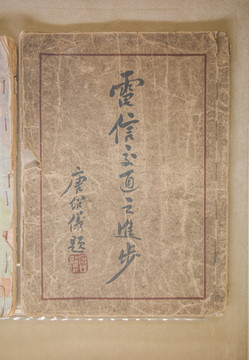 電信交通之進步
唐紹儀題